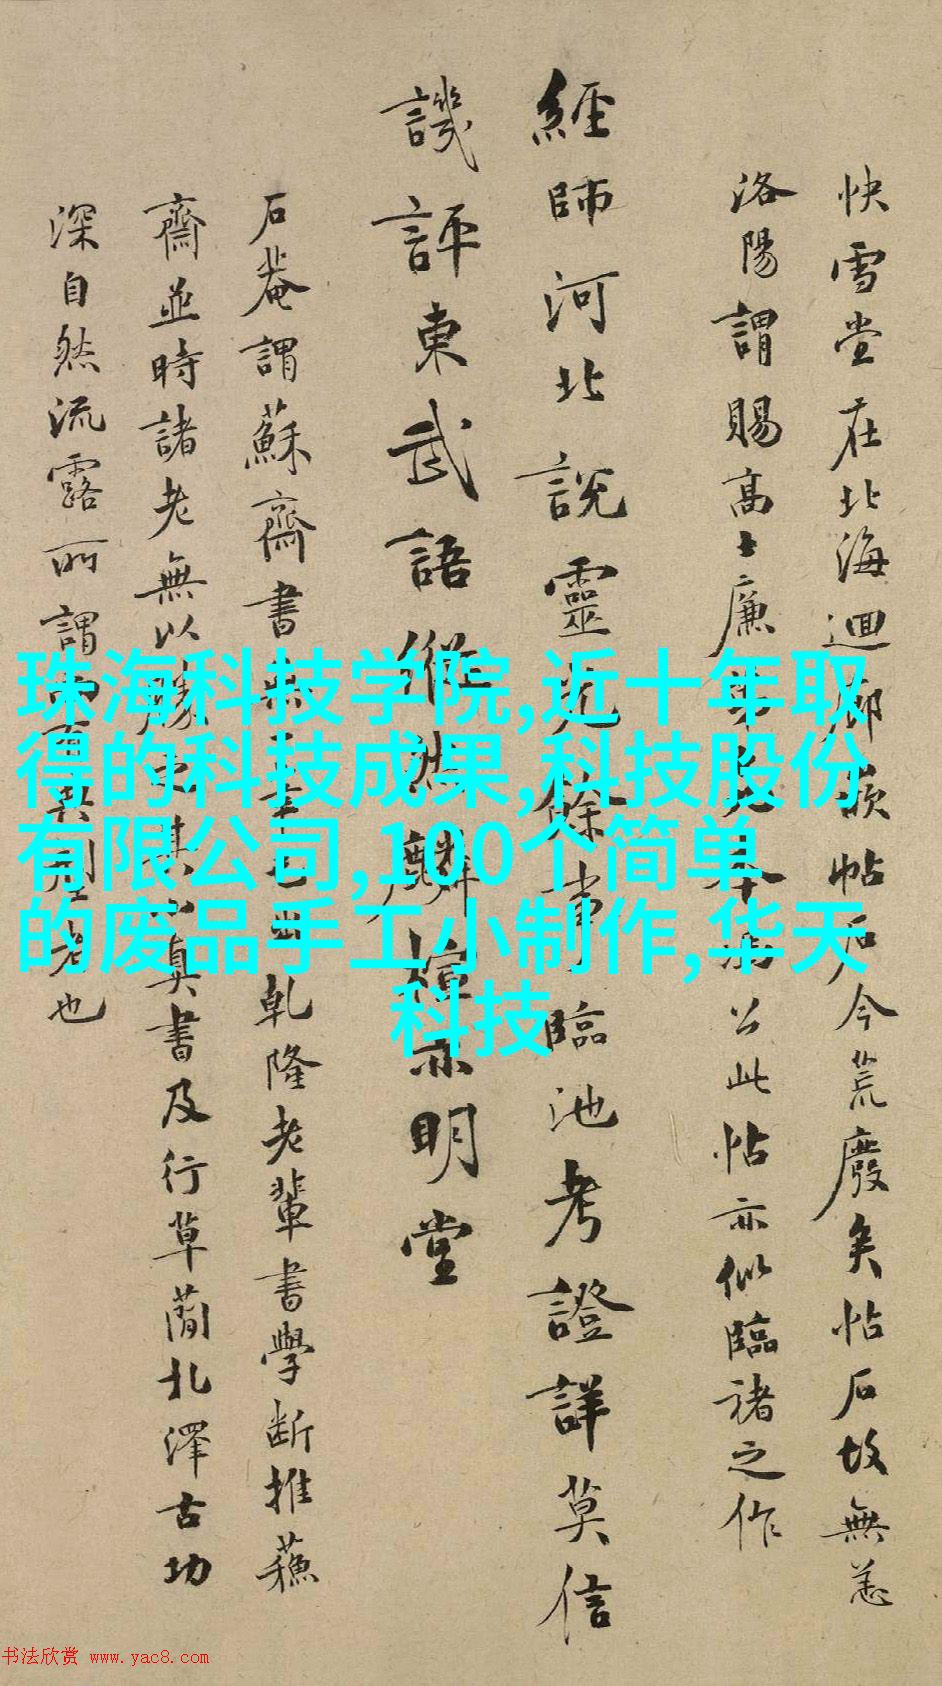 快雪堂在北海迴廊嵌帖石今荒廢矣帖石故無恙
洛陽謂賜高士廉
公此帖亦似臨褚之作
經師河北說靈光餘事臨池考證詳莫信
譏評東武語縱橫麟楦亦明堂
石菴謂蘇齋書
乾隆老輩書學斷推蘓
齋並時諸老無以勝之其小真書及行草蕳札澤古功
深自然流露所謂
者也
珠海科技学院,近十年取
得的科技成果,科技股份
有限公司,100个简单
的废品手工小制作,华天
科技
书法欣赏 www.yac8.com